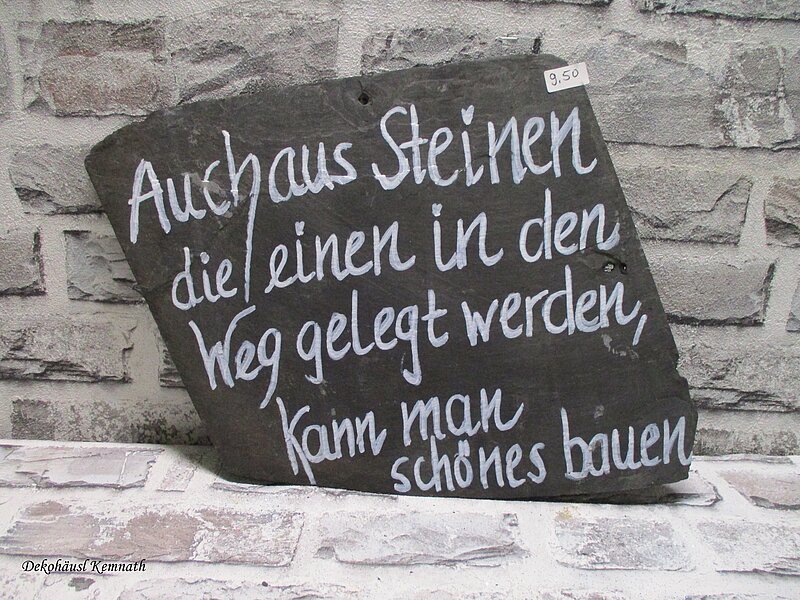 9,50
Auch aus Steinen
die einen in den
Weg gelegt werden,
Kann man
schönes bauen
Dekohäusl Kemnath